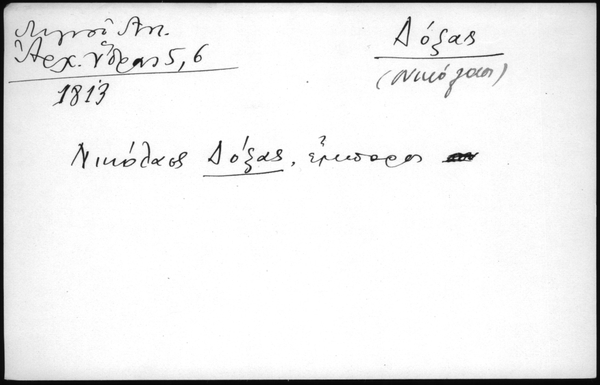 Λιγνοῦ Ἀντ.
Ἀρχ. Ὕδρας 5, 6
1813
Δόξας
(Νικόλαος)
Νικόλαος Δόξας, ἔμπορος